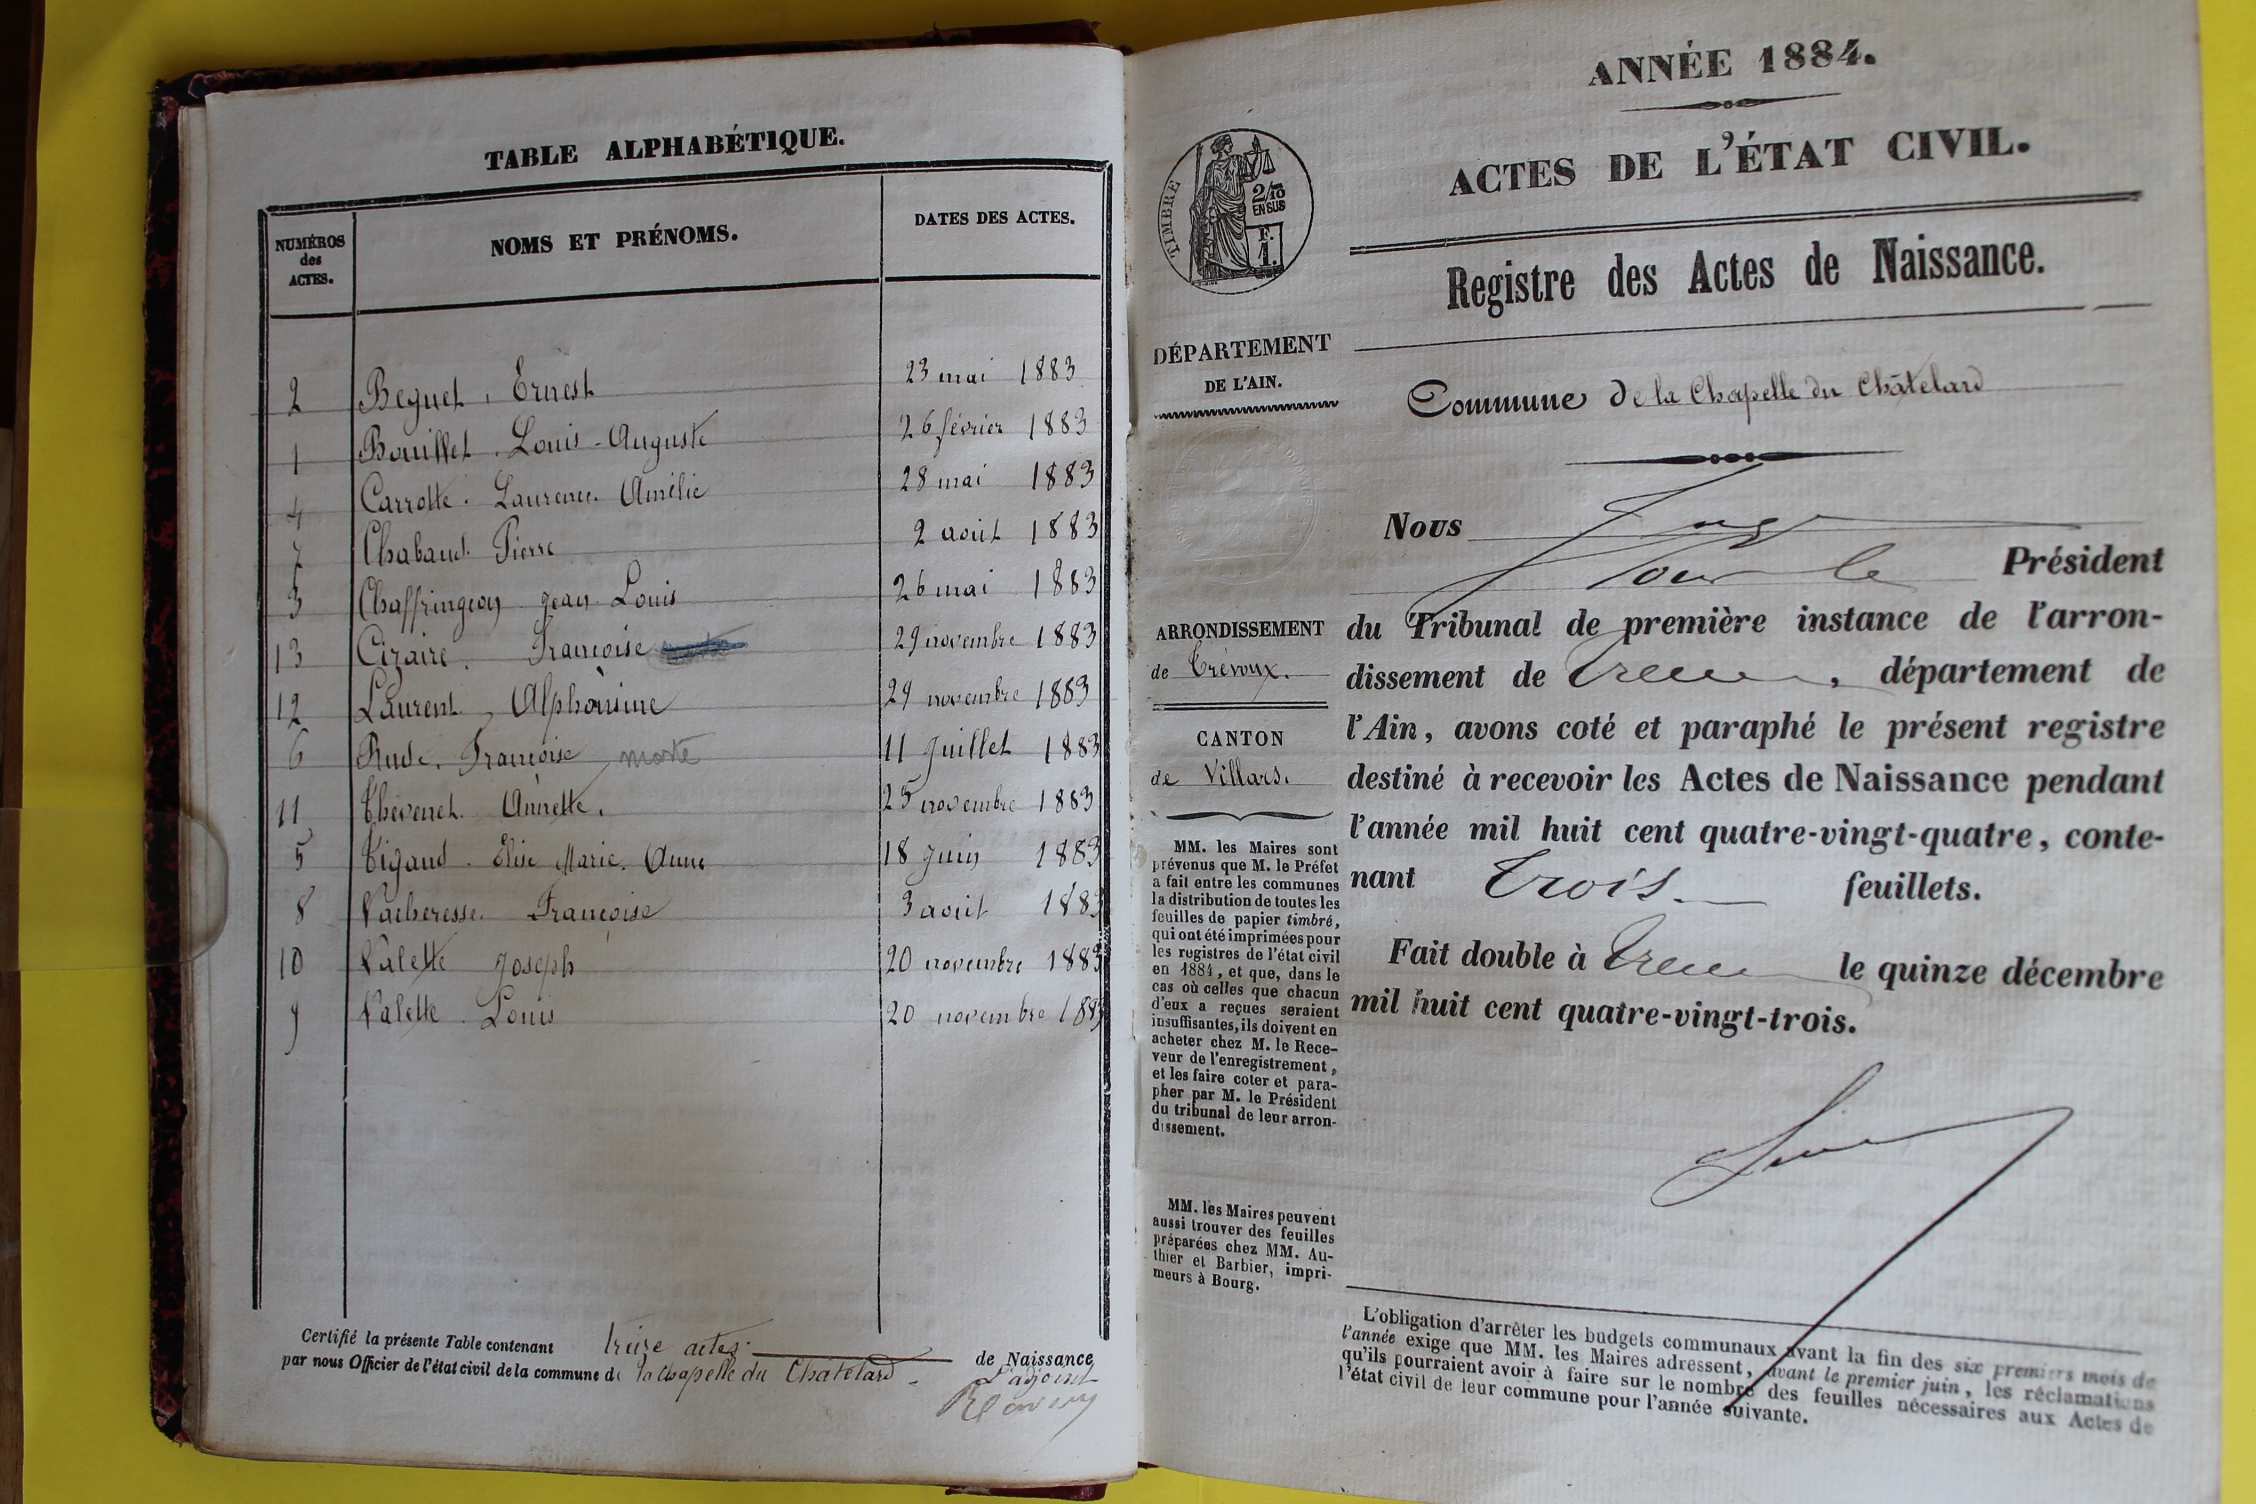 TABLE ALPHABÉTIQUE.
NUMÉROS
des
ACTES.
NOMS ET PRÉNOMS.
DATES DES ACTES.
2 Beguet, Ernest 23 mai 1883
1 Bouillet. Louis-Auguste 26 février 1883
4 Carrotte. Laurence Amélie 28 mai 1883
7 Chabaud. Pierre 2 août 1883
3 Chaffringeon Jean Louis 26 mai 1883
13 Ciraire. Françoise 29 novembre 1883
12 Laurent, Alphonsine 29 novembre 1883
6 Rude. Françoise morte 11 Juillet 1883
11 Thévenet. Annette. 25 novembre 1883
5 Tigaud. Elise Marie. Anne 18 Juin 1883
8 Vacheresse. Françoise 3 août 1883
10 Valette Joseph 20 novembre 1883
9 Valette. Louis 20 novembre 1883
Certifié la présente Table contenant treize actes de Naissance
par nous Officier de l'état civil de la commune de la Chapelle du Châtelard
L'adjoint
ANNÉE 1884.
ACTES DE L'ÉTAT CIVIL.
TIMBRE
2/10
EN SUS
F.
1.
Registre des Actes de Naissance.
DÉPARTEMENT
DE L'AIN.
Commune de la Chapelle du Châtelard
Nous Juge
Pour le Président
du Tribunal de première instance de l'arron-
dissement de Trévoux, département de
l'Ain, avons coté et paraphé le présent registre
destiné à recevoir les Actes de Naissance pendant
l'année mil huit cent quatre-vingt-quatre, conte-
nant trois feuillets.
Fait double à Trévoux le quinze décembre
mil huit cent quatre-vingt-trois.
ARRONDISSEMENT
de Trévoux.
CANTON
de Villars.
MM. les Maires sont
prévenus que M. le Préfet
a fait entre les communes
la distribution de toutes les
feuilles de papier timbré,
qui ont été imprimées pour
les registres de l'état civil
en 1884, et que, dans le
cas où celles que chacun
d'eux a reçues seraient
insuffisantes, ils doivent en
acheter chez M. le Rece-
veur de l'enregistrement,
et les faire coter et para-
pher par M. le Président
du tribunal de leur arron-
dissement.
MM. les Maires peuvent
aussi trouver des feuilles
préparées chez MM. Au-
thier et Barbier, impri-
meurs à Bourg.
L'obligation d'arrêter les budgets communaux avant la fin des six premiers mois de
l'année exige que MM. les Maires adressent, avant le premier juin, les réclamations
qu'ils pourraient avoir à faire sur le nombre des feuilles nécessaires aux Actes de
l'état civil de leur commune pour l'année suivante.